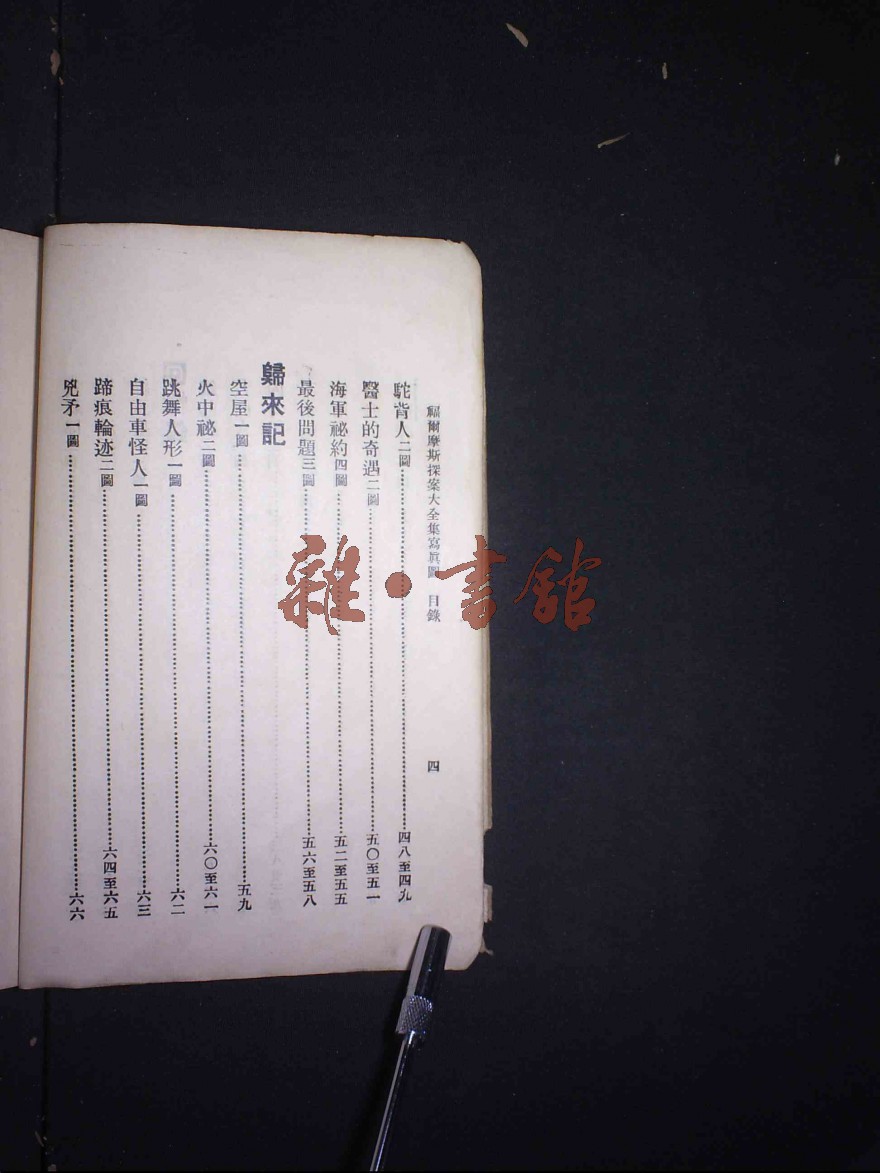 福爾摩斯探案大全集寫眞圖 目錄 四
駝背人二圖……四八至四九
醫士的奇遇二圖……五〇至五一
海軍祕約四圖……五二至五五
最後問題三圖……五六至五八
歸來記
空屋一圖……五九
火中祕二圖……六〇至六一
跳舞人形一圖……六二
自由車怪人一圖……六三
蹄痕輪迹二圖……六四至六五
兇矛一圖……六六
雜·書館